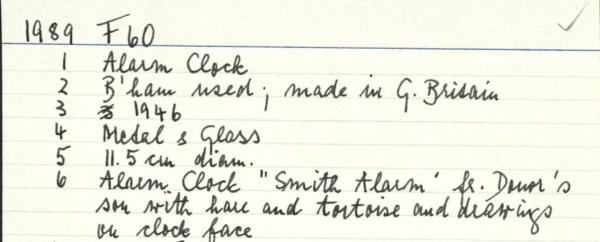 1989 F60
1 Alarm Clock
2 B'ham used; made in G. Britain
3 1946
4 Metal & Glass
5 11.5 cm diam.
6 Alarm Clock "Smith Alarm' fr. Donor's
son with hare and tortoise and drawings
on clock face